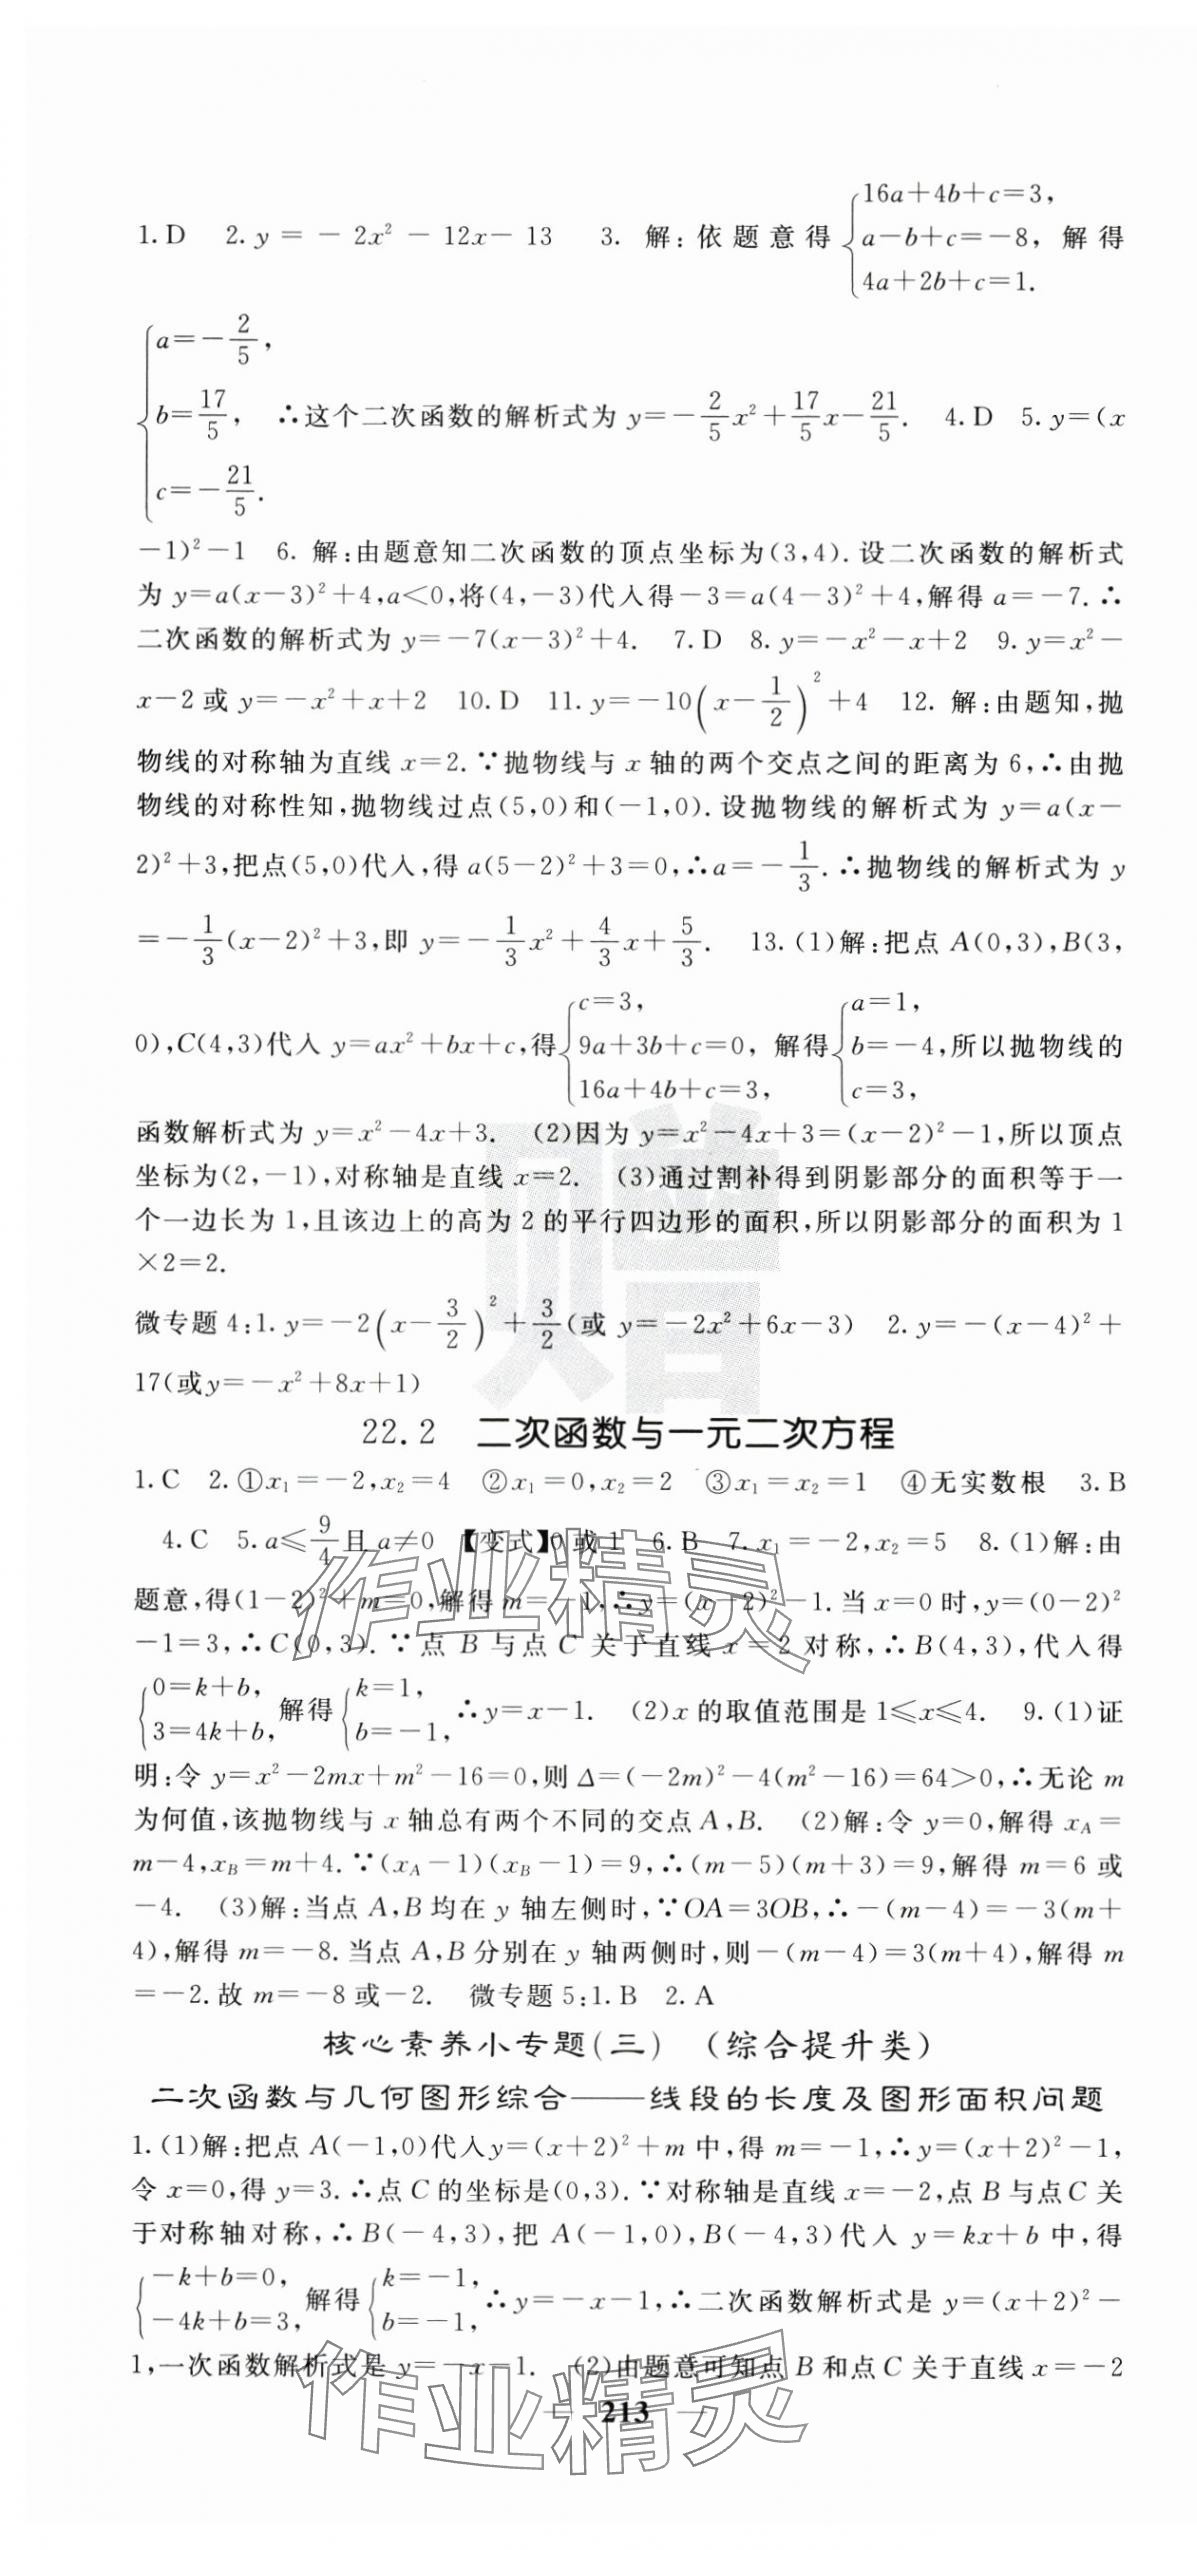 1. D　2. y = − 2x² − 12x − 13　3. 解:依题意得{16a+4b+c=3, a−b+c=−8, 4a+2b+c=1. 解得
{a=−2/5, b=17/5, c=−21/5. ∴这个二次函数的解析式为 y=−2/5x²+17/5x−21/5.　4. D　5. y=(x
−1)²−1　6. 解:由题意知二次函数的顶点坐标为(3,4). 设二次函数的解析式
为 y=a(x−3)²+4,a<0,将(4,−3)代入得−3=a(4−3)²+4,解得 a=−7. ∴
二次函数的解析式为 y=−7(x−3)²+4.　7. D　8. y=−x²−x+2　9. y=x²−
x−2 或 y=−x²+x+2　10. D　11. y=−10(x−1/2)²+4　12. 解:由题知,抛
物线的对称轴为直线 x=2. ∵抛物线与 x 轴的两个交点之间的距离为 6,∴由抛
物线的对称性知,抛物线过点(5,0)和(−1,0). 设抛物线的解析式为 y=a(x−
2)²+3,把点(5,0)代入,得 a(5−2)²+3=0,∴a=−1/3. ∴抛物线的解析式为 y
=−1/3(x−2)²+3,即 y=−1/3x²+4/3x+5/3.　13. (1)解:把点 A(0,3),B(3,
0),C(4,3)代入 y=ax²+bx+c,得{c=3, 9a+3b+c=0, 16a+4b+c=3, 解得{a=1, b=−4, c=3, 所以抛物线的
函数解析式为 y=x²−4x+3.　(2)因为 y=x²−4x+3=(x−2)²−1,所以顶点
坐标为(2,−1),对称轴是直线 x=2.　(3)通过割补得到阴影部分的面积等于一
个一边长为 1,且该边上的高为 2 的平行四边形的面积,所以阴影部分的面积为 1
×2=2.
微专题 4:1. y=−2(x−3/2)²+3/2(或 y=−2x²+6x−3)　2. y=−(x−4)²+
17(或y=−x²+8x+1)
赠
22.2　二次函数与一元二次方程
1. C　2. ①x₁=−2,x₂=4　②x₁=0,x₂=2　③x₁=x₂=1　④无实数根　3. B
4. C　5. a≤9/4且 a≠0　【变式】0 或 1　6. B　7. x₁=−2,x₂=5　8. (1)解:由
题意,得(1−2)²+m=0,解得 m=−1,∴y=(x−2)²−1. 当 x=0 时,y=(0−2)²
−1=3,∴C(0,3). ∵点 B 与点 C 关于直线 x=2 对称,∴B(4,3),代入得
{0=k+b, 3=4k+b, 解得{k=1, b=−1, ∴y=x−1.　(2)x 的取值范围是 1≤x≤4.　9. (1)证
明:令 y=x²−2mx+m²−16=0,则 Δ=(−2m)²−4(m²−16)=64>0,∴无论 m
为何值,该抛物线与 x 轴总有两个不同的交点 A,B.　(2)解:令 y=0,解得 x_A=
m−4,x_B=m+4. ∵(x_A−1)(x_B−1)=9,∴(m−5)(m+3)=9,解得 m=6 或
−4.　(3)解:当点 A,B 均在 y 轴左侧时,∵OA=3OB,∴−(m−4)=−3(m+
4),解得 m=−8. 当点 A,B 分别在 y 轴两侧时,则−(m−4)=3(m+4),解得 m
=−2. 故 m=−8 或−2.　微专题 5:1. B　2. A
核心素养小专题(三)　(综合提升类)
二次函数与几何图形综合——线段的长度及图形面积问题
1. (1)解:把点 A(−1,0)代入y=(x+2)²+m 中,得 m=−1,∴y=(x+2)²−1,
令 x=0,得 y=3. ∴点 C 的坐标是(0,3). ∵对称轴是直线 x=−2,点 B 与点C 关
于对称轴对称,∴B(−4,3),把 A(−1,0),B(−4,3)代入 y=kx+b 中,得
{−k+b=0, −4k+b=3, 解得{k=−1, b=−1, ∴y=−x−1,∴二次函数解析式是 y=(x+2)²−
1,一次函数解析式是 y=−x−1.　(2)由题意可知点 B 和点 C 关于直线 x=−2
213
作业精灵
作业精灵